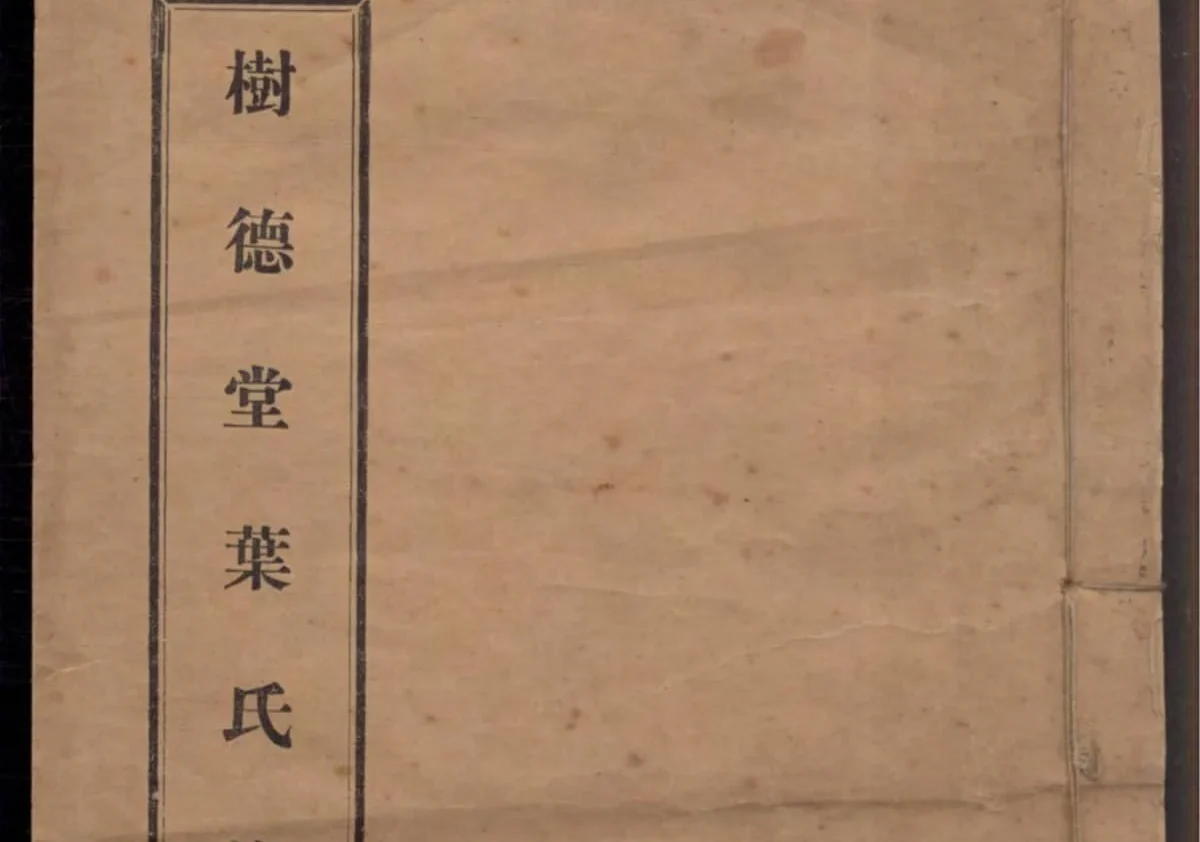 樹德堂葉氏